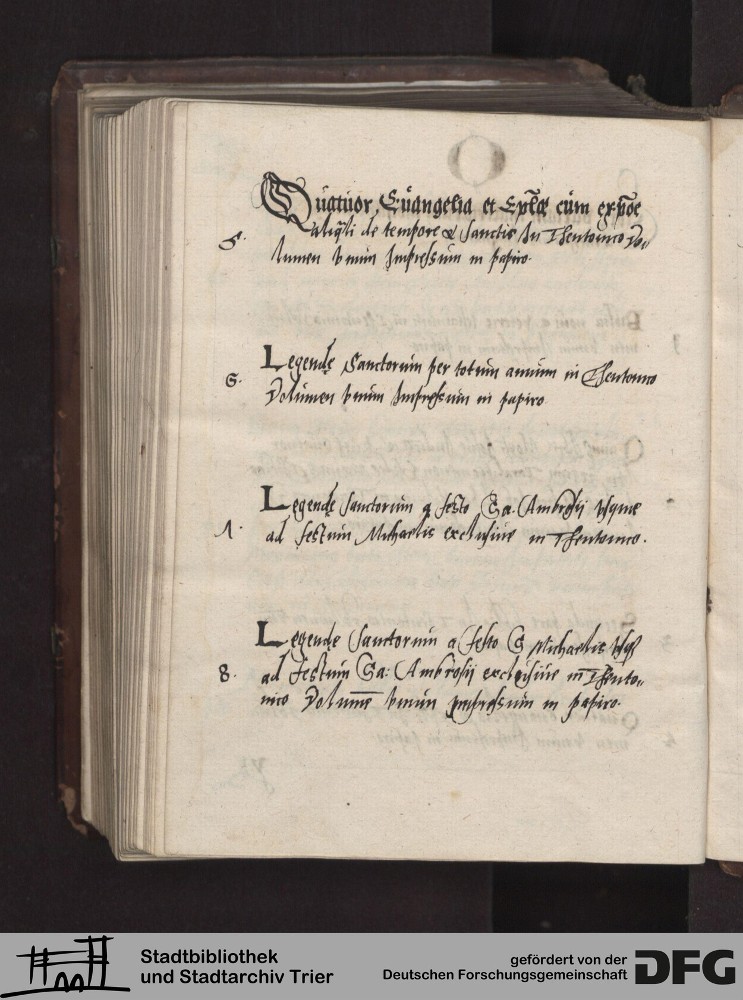 O
Quatuor Euangelia et Eplae cum expoe
5. aliqli de tempore & Sanctis In Theutonico Vo-
lumen vnum Impressum in papiro.
6. Legende Sanctorum per totum annum in Theutonico
Volumen vnum Impressum in papiro
Legende Sanctorum a festo Sa. Ambrosij vsque
ad festum Michaelis exclusiue in Theutonico.
Legende Sanctorum a festo S Michaelis vsq
8. ad festum Sa: Ambrosij exclusiue in Theuto-
nico Volume vnum Impressum in papiro.
Stadtbibliothek
und Stadtarchiv Trier
gefördert von der
Deutschen Forschungsgemeinschaft
DFG